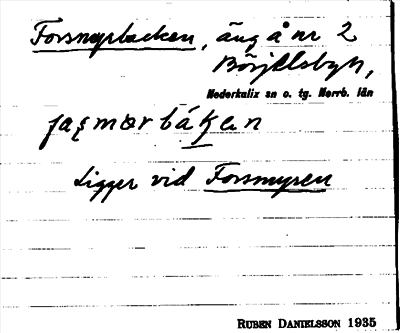 Forsmyrbacken, äng å nr 2
Börjelsbyn,
Nederkalix sn o. tg. Norrb. län
fasmorbákan
Ligger vid Forsmyren
RUBEN DANIELSSON 1935